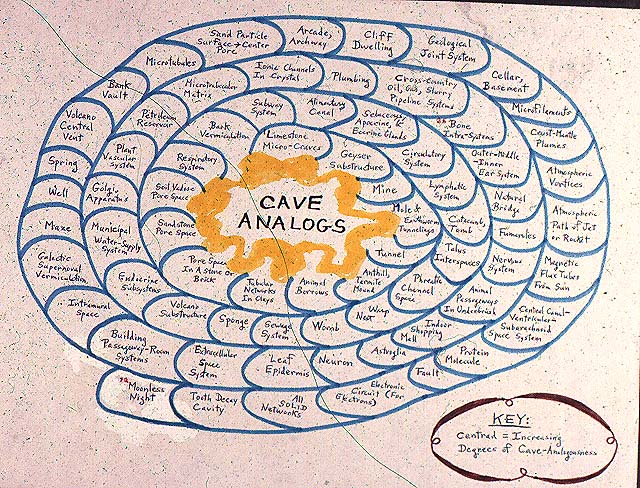 CAVE
ANALOGS
Limestone
Micro-Craves
Geyser
Substructure
Mine
Mole &
Earthworm
Tunnelings
Tunnel
Anthill,
Termite
Mound
Animal
Burrows
Tubular
Networks
In Clays
Pore Space
In A Stone or
Brick
Sandstone
Pore Space
Soil Vadose
Pore Space
Respiratory
System
Bark
Vermiculation
Subway
System
Alimentary
Canal
Sebaceous
Apocrine, &
Eccrine Glands
Circulatory
System
Lymphatic
System
Catacomb,
Tomb
Talus
Interspaces
Phreatic
Channel
Space
Wasp
Nest
Womb
Sewage
System
Sponge
Volcano
Substructure
Endocrine
Subsystems
Municipal
Water-Supply
System
Golgi
Apparatus
Plant
Vascular
System
Petroleum
Reservoir
Microtrabecular
Matrix
Ionic Channels
In Crystal
Plumbing
Cross-Country
Oil, Gas, Slurry
Pipeline Systems
Bone
Intra-Systems
Outer-Middle
-Inner
Ear System
Natural
Bridge
Fumaroles
Nervous
System
Animal
Passageways
In Underbrush
Indoor
Shopping
Mall
Astroglia
Neuron
Leaf
Epidermis
Extracellular
Space
System
Building
Passageway-Room
Systems
Intramural
Space
Galactic
Supernoval
Vermiculation
Maze
Well
Spring
Volcano
Central
Vent
Bank
Vault
Microtubules
Sand Particle
Surface → Center
Pore
Arcade,
Archway
Cliff
Dwelling
Geological
Joint System
Cellar,
Basement
Microfilaments
Crust-Mantle
Plumes
Atmospheric
Vortices
Atmospheric
Path of Jet
or Rocket
Magnetic
Flux Tubes
From Sun
Central Canal-
Ventricular-
Subarachnoid
Space System
Protein
Molecule
Fault
Electronic
Circuit (For
Electrons)
All
SOLID
Networks
Tooth Decay
Cavity
Moonless
Night
KEY:
Centrad = Increasing
Degrees of Cave-Analogousness